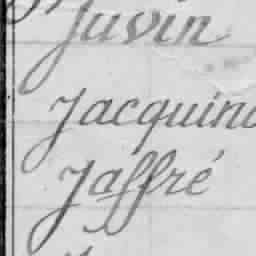 Juvin
Jacquin
Jaffré